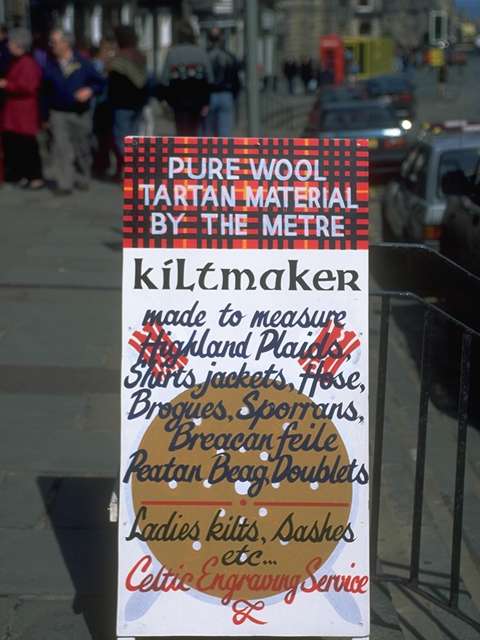 PURE WOOL
TARTAN MATERIAL
BY THE METRE
kíltmaker
made to measure
Highland Plaids,
Shirts, jackets, Hose,
Brogues, Sporrans,
Breacan feile
Peatan Beag, Doublets
Ladies kilts, Sashes
etc...
Celtic Engraving Service